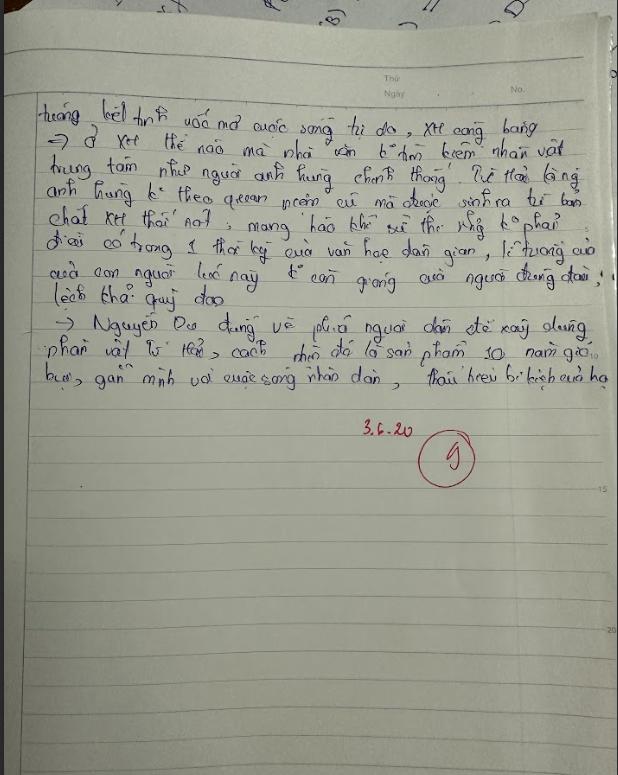 Thứ
Ngày
No.
tưởng kết tinh ước mơ cuộc sống tự do, XH công bằng
=> Ở XH thế nào mà nhà văn k° tìm kiếm nhân vật
trung tâm như người anh hùng chính thống. Từ Hải là ng
anh hùng k° theo quan niệm cũ mà được sinh ra từ bản
chất XH thối nát, mang hào khí xử thế k° phải
có trong 1 thời kỳ của văn học dân gian, lí tưởng của
của con người lúc này k° còn giống của người trung đại,
lệch khỏi quỹ đạo
-> Nguyễn Du đứng về phía người dân để xây dựng
nhân vật Từ Hải, cách nhìn đó là sản phẩm 10 năm gió
bụi, gắn mình với cuộc sống nhân dân, thấu hiểu bi kịch của họ
3.6.20
9
15
20